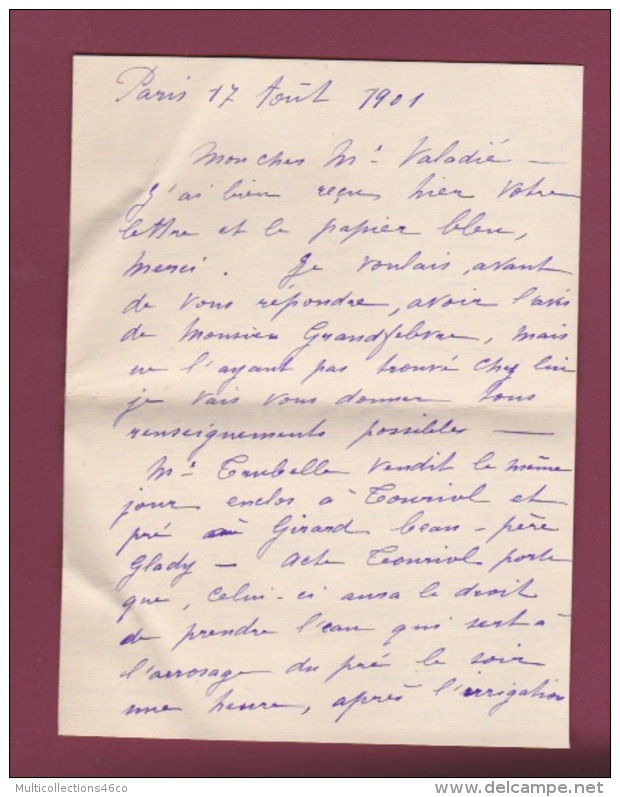 Paris 17 Août 1901
Mon cher Mr Valadié —
J'ai bien reçus hier votre
lettre et le papier bleu,
merci. Je voulais, avant
de vous répondre, avoir l'avis
de Monsieur Grandfebvre, mais
ne l'ayant pas trouvé chez lui
je vais vous donner tous
renseignements possibles —
Mr Trubelle vendit le même
jour enclos à Touriol et
pré à Girard beau-père
Glady — Acte Touriol porte
que, celui-ci aura le droit
de prendre l'eau qui sert à
l'arrosage du pré le soir
une heure, après l'irrigation
Multicollections46co
delcampe.net